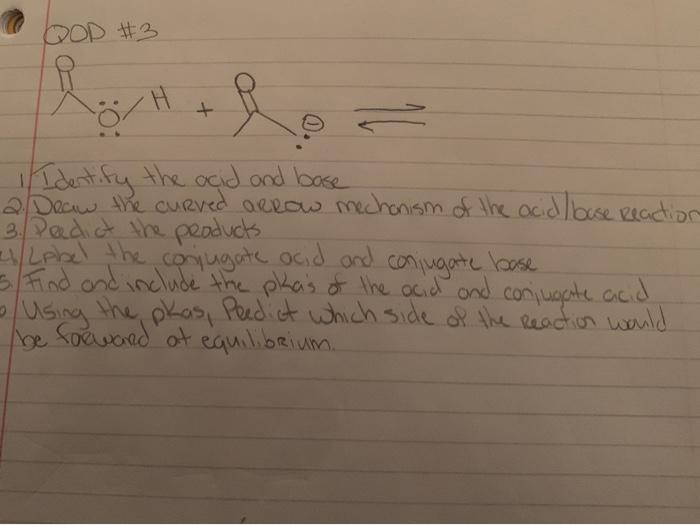 QOD #3
O O
O H + ⊖ ⇌
1. Identify the acid and base
2. Draw the curved arrow mechanism of the acid/base reaction
3. Predict the products
4. Label the conjugate acid and conjugate base
5. Find and include the pka's of the acid and conjugate acid
Using the pkas, Predict which side of the reaction would
be forward at equilibrium.